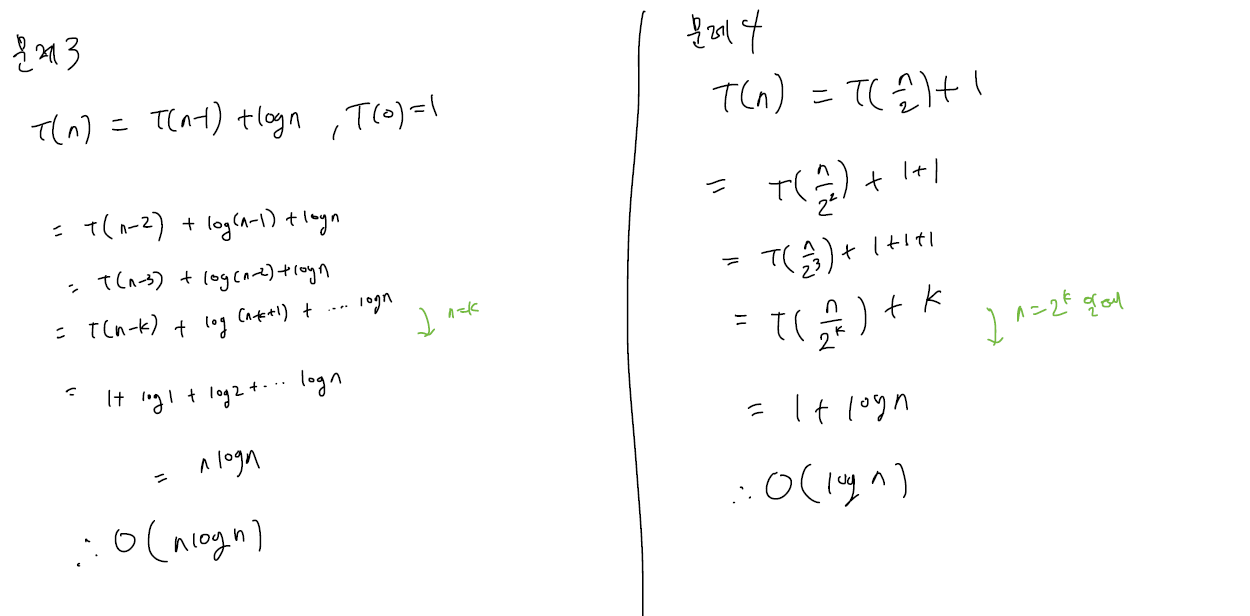 문제 3
T(n) = T(n-1) + logn , T(0)=1
= T(n-2) + log(n-1) + logn
= T(n-3) + log(n-2) + logn
= T(n-k) + log (n-k+1) + ... logn
n=k
= 1+ log1 + log2 + ... logn
= nlogn
∴ O(nlogn)
문제 4
T(n) = T(n/2) + 1
= T(n/2²) + 1+1
= T(n/2³) + 1+1+1
= T(n/2ᵏ) + k
n=2ᵏ
= 1 + logn
∴ O(log n)